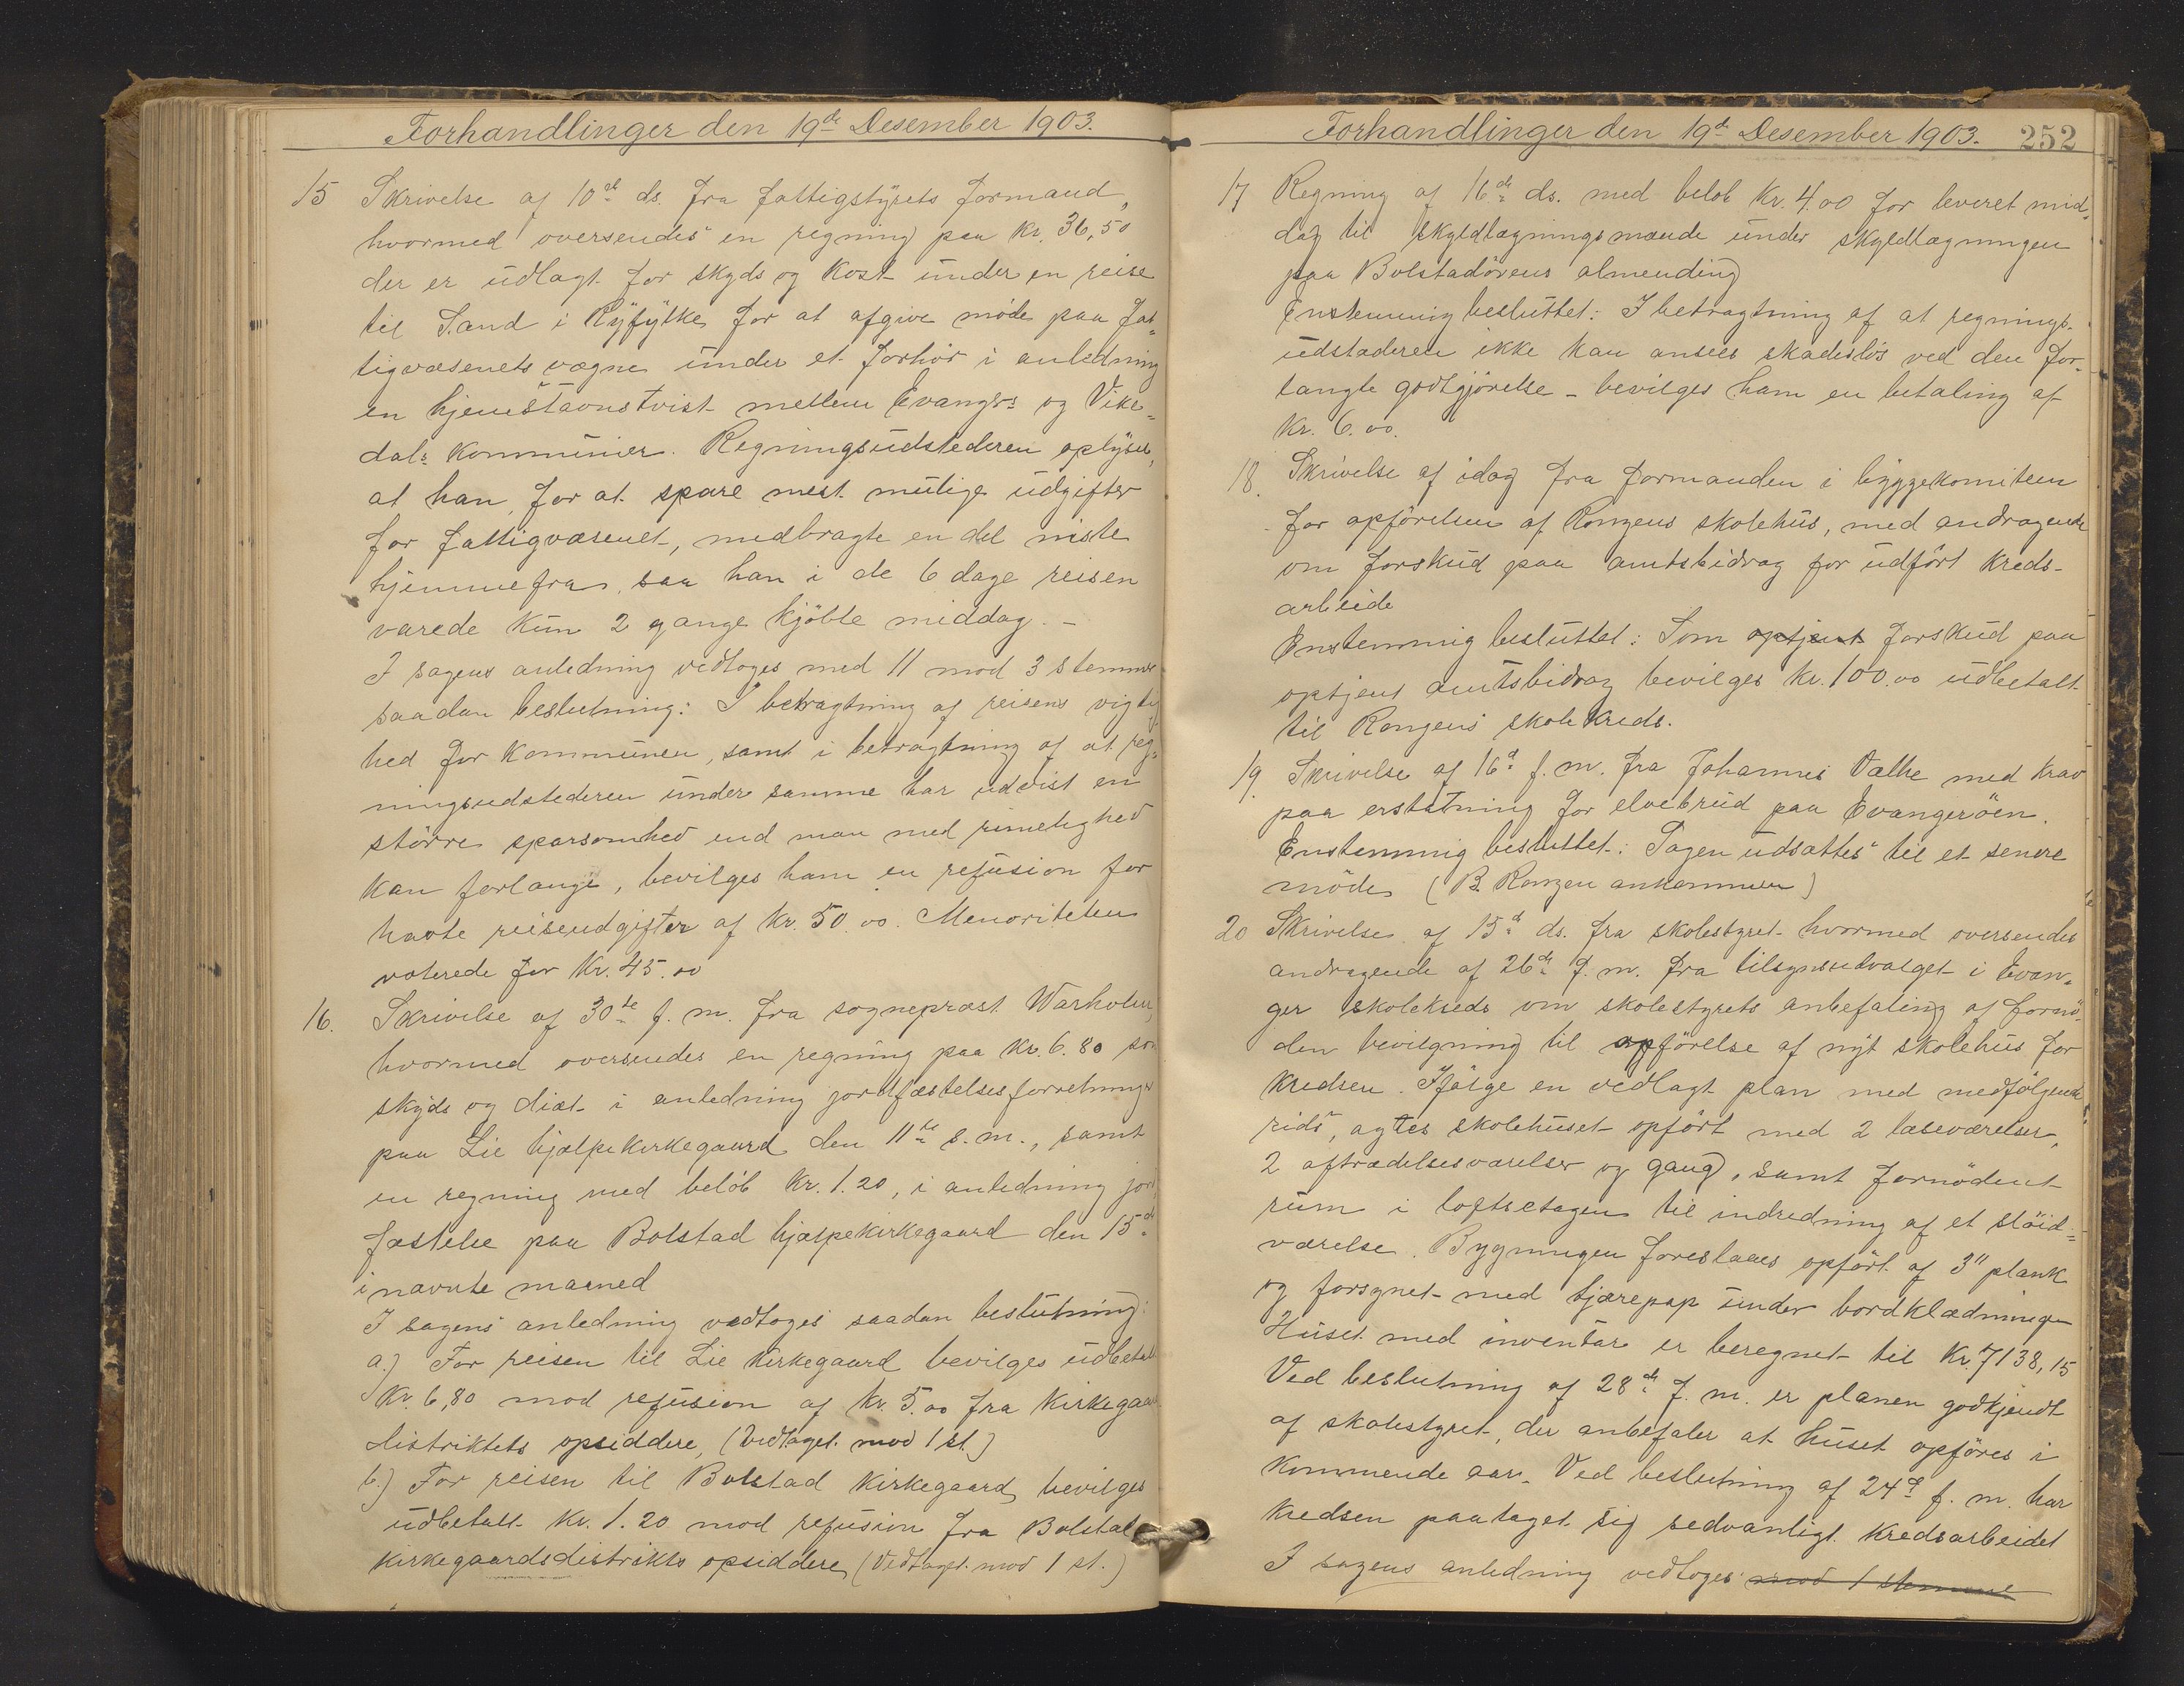 Forhandlinger den 19de Desember 1903.
15 Skrivelse af 10de ds. fra fattigstyrets formand,
hvormed oversendes en regning paa kr. 36,50
der er udlagt for skyds og kost under en reise
til Sand i Ryfylke for at afgive møde paa fat-
tigvæsenets vegne under et forhør i anledning
en hjemstavnstvist mellem Evangers og Vike-
dals kommuner. Regningsudstederen oplyser,
at han, for at spare mest mulige udgifter
for fattigvæsenet, medbragte en del niste
hjemmefra, saa han i de 6 dage reisen
varede kun 2 gange kjøbte middag. -
I sagens anledning vedtoges med 11 mod 3 stemmer
saadan beslutning: I betragtning af reisens vigtig
hed for kommunen, samt i betragtning af at reg-
ningsudstederen under samme har udvist en
større sparsomhed end man med rimelighed
kan forlange, bevilges ham en refusion for
havte reiseudgifter af kr. 50.00. Menoriteten
voterede for kr. 45.00
16. Skrivelse af 30te f. m. fra sognepræst Warholm,
hvormed oversendes en regning paa kr. 6.80 for
skyds og diæt i anledning jordfæstelsesforretninger
paa Lie hjælpekirkegaard den 11te s. m., samt
en regning med beløb kr. 1.20, i anledning jord
fæstelse paa Bolstad hjælpekirkegaard den 15de
i nævnte maaned
I sagens anledning vedtoges saadan beslutning:
a.) For reisen til Lie kirkegaard bevilges udbetalt
kr. 6,80 mod refusion af kr. 5.00 fra kirkegaar
distriktets opsiddere, (Vedtaget mod 1 st.)
b.) For reisen til Bolstad kirkegaard, bevilges
udbetalt kr. 1.20 mod refusion fra Bolstad
kirkegaardsdistrikts opsiddere, (Vedtaget mod 1 st.)
Forhandlinger den 19de Desember 1903. 252
17 Regning af 16de ds. med beløb kr. 4.00 for leveret mid-
dag til skyldlægningsmænde under skyldlægningen
paa Bolstadørens almending
Enstemmig besluttet: I betragtning af at regnings-
udstæderen ikke kan ansees skadesløs ved den for-
langte godtgjørelse - bevilges ham en betaling af
kr. 6.00.
18. Skrivelse af idag fra formanden i byggekomiteen
for opførelsen af Rongens skolehus, med andragende
om forskud paa amtsbidrag for udført kreds-
arbeide
Enstemmig besluttet: Som optjent forskud paa
optjent amtsbidrag bevilges kr. 100.00 udbetalt
til Rongens skolekreds.
19. Skrivelse af 16de f. m. fra Johannes Væthe med krav
paa erstatning for elvebrud paa Evangerøen.
Enstemmig besluttet: Sagen udsættes til et senere
møde (B. Rongen ankommen)
20 Skrivelse af 15de ds. fra skolestyret hvormed oversendes
andragende af 26de f. m. fra tilsynsudvalget i Evan-
ger skolekreds om skolestyrets anbefaling af fornø-
den bevilgning til opførelse af nyt skolehus for
kredsen. Ifølge en vedlagt plan med medfølgende
rids, agtes skolehuset opført med 2 læseværelser,
2 aftrædelsesværelser og gang, samt fornødent
rum i loftsetagen til indredning af et sløid-
værelse. Bygningen foreslaaes opført af 3" plank
og forsynet med tjærepap under bordklædningen
Huset med inventar er beregnet til kr. 7138,15
Ved beslutning af 28de f. m. er planen godkjendt
af skolestyret, der anbefaler at huset opføres i
kommende aar. Ved beslutning af 24de f. m. har
kredsen paataget sig sedvanligt kredsarbeidet
I sagens anledning vedtoges mod 1 stemme